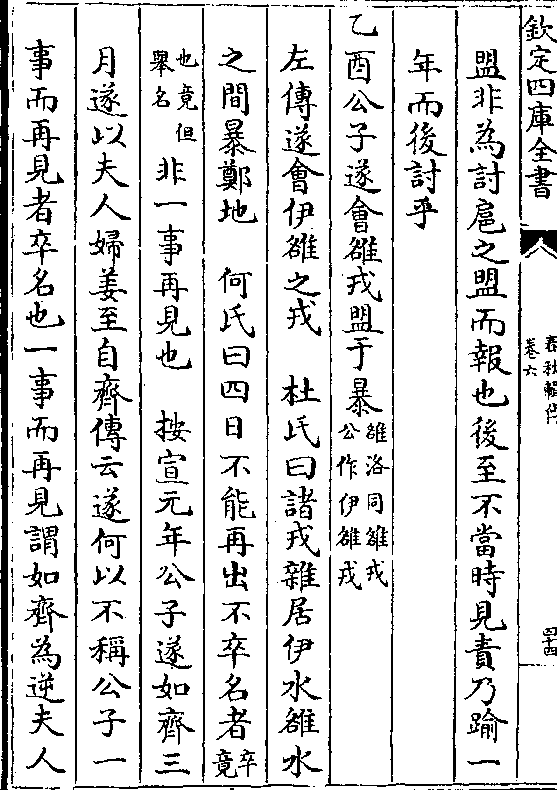 欽定四庫全書
春秋輯傳
卷六
四十四
盟非為討扈之盟而報也後至不當時見責乃踰一
年而後討乎
乙酉公子遂會雒戎盟于暴雒洛同雒戎公作伊雒戎
左傳遂會伊雒之戎　杜氏曰諸戎雜居伊水雒水
之間暴鄭地　何氏曰四日不能再出不卒名者卒竟
也竟但舉名非一事再見也　按宣元年公子遂如齊三
月遂以夫人婦姜至自齊傳云遂何以不稱公子一
事而再見者卒名也一事而再見謂如齊為逆夫人